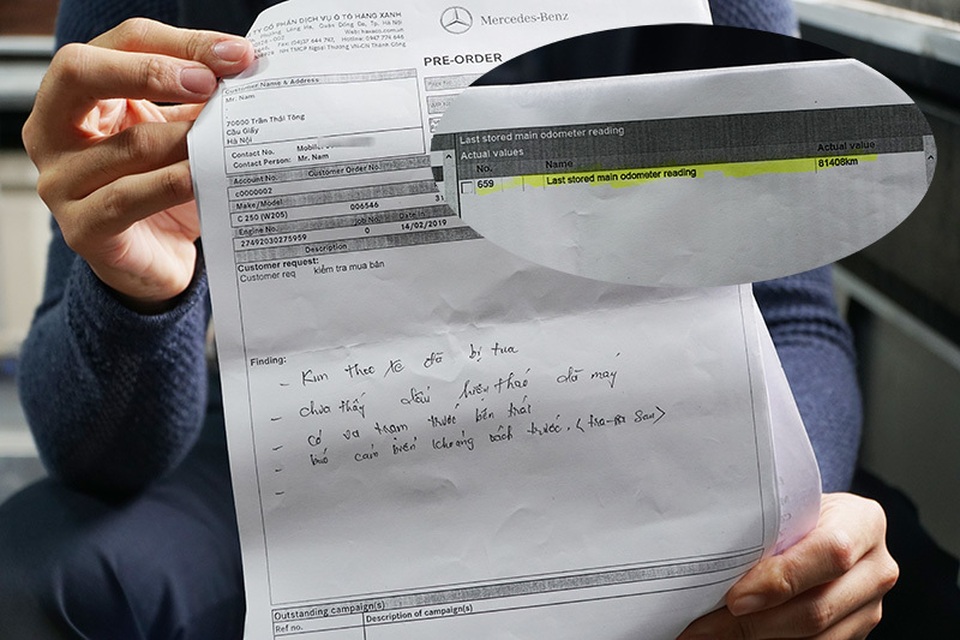 TY CỔ PHẦN DỊCH VỤ Ô TÔ HÀNG XANH
Mercedes-Benz
PRE-ORDER
Customer Name & Address
Mr. Nam
70000 Trần Thái Tông
Cầu Giấy
Hà Nội
Contact No. Mobile:
Contact Person: Mr. Nam
Account No. Customer Order No.
c0000002
Make/Model
C 250 (W205) 006546 31
Engine No. Job No. Date In
27492030275959 0 14/02/2019
Description
Customer request:
Customer req kiểm tra mua bán
Last stored main odometer reading
Actual values
No. Name Actual value
659 Last stored main odometer reading 81408km
Finding:
- Km thực tế đã bị tua
- chưa thấy dấu hiệu tháo dỡ máy
- có va trạm trước bên trái
- cảm biến khoảng cách trước.
-
Outstanding campaign(s)
Ref no. Description of campaign(s)